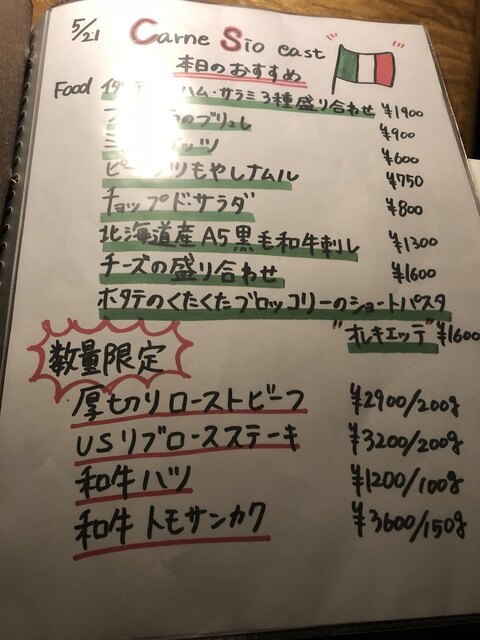 5/21 Carne Sio east
本日のおすすめ
Food
ハム・サラミ3種盛り合わせ ¥1900
のブリュレ ¥900
ッツ ¥600
もやしナムル ¥750
チョップド・サラダ ¥800
北海道産A5黒毛和牛刺し ¥1300
チーズの盛り合わせ ¥1600
ホタテのくたくたブロッコリーのショートパスタ
"オレキエッテ" ¥1600
数量限定
厚切りローストビーフ ¥2900/200g
USリブロースステーキ ¥3200/200g
和牛ハツ ¥1200/100g
和牛トモサンカク ¥3600/150g